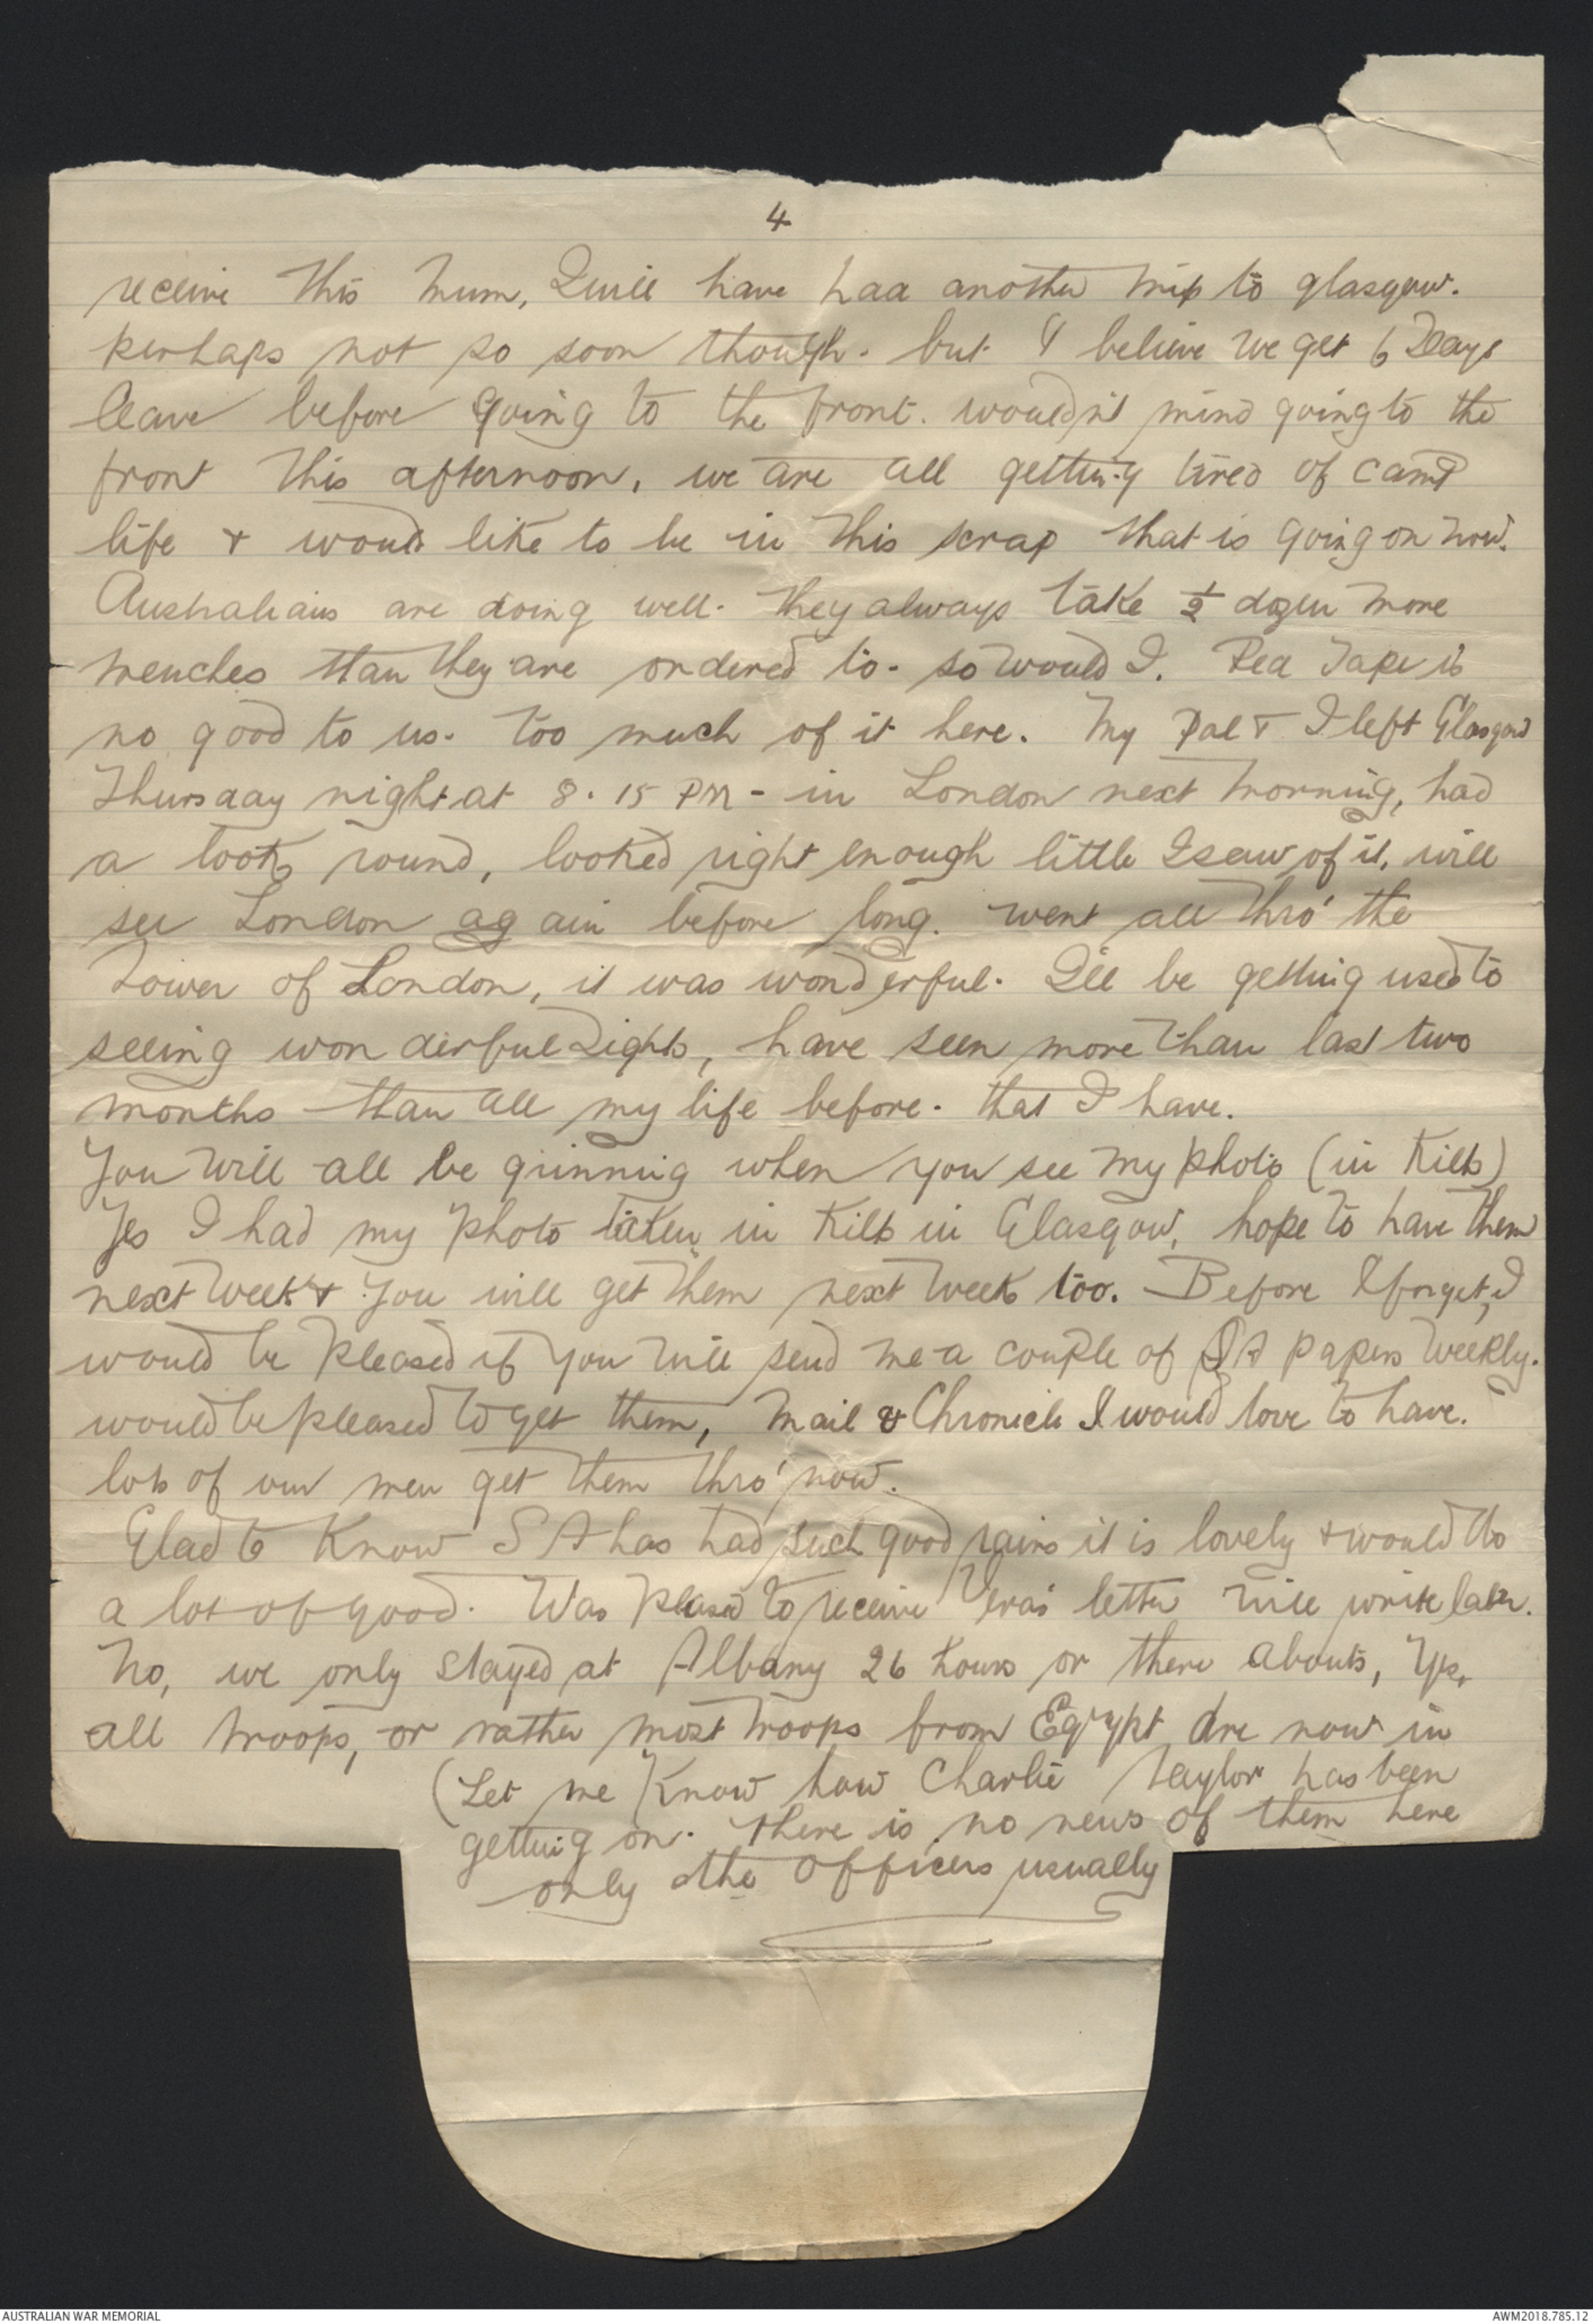 4
receive this Mum, I will have had another trip to glasgow.
perhaps not so soon though. but I believe we get 6 Days
leave before going to the front. wouldn't mind going to the
front this afternoon, we are all getting tired of camp
life & would like to be in this scrap that is going on now.
Australians are doing well. they always take ½ dozen more
trenches than they are ordered to - so would I. Red Tape is
no good to us. too much of it here. My Pal & I left Glasgow
Thursday night at 8.15 PM - in London next morning, had
a look round, looked right enough little I saw of it, will
see London again before long. went all thro' the
Tower of London, it was wonderful. I'll be getting used to
seeing wonderful sights, have seen more than last two
months than all my life before. that I have.
You will all be grinning when you see my photo (in Kilts)
Yes I had my photo taken in Kilts in Glasgow, hope to have them
next week & you will get them next week too. Before I forget, I
would be pleased if you will send me a couple of SA papers weekly.
would be pleased to get them, Mail & Chronicle I would love to have.
lots of our men get them thro' now.
Glad to Know SA has had such good rains it is lovely & would do
a lot of good. Was pleased to receive Vera's letter will write later.
No, we only stayed at Albany 26 hours or there abouts, Yes,
all troops, or rather most troops from Egypt are now in
(Let me Know how Charlie Taylor has been
getting on. there is no news of them here
only the Officers usually
AUSTRALIAN WAR MEMORIAL
AWM2018.785.12